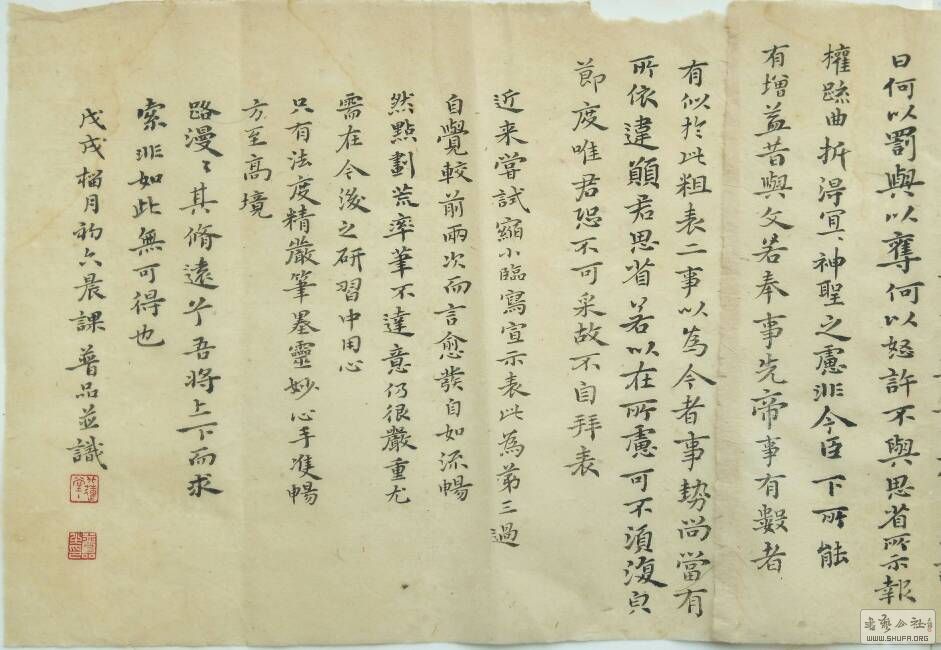 日何以罰與以奪何以怒許不與思省所示報
權疏曲折得宜神聖之慮非今臣下所能
有增益昔與文若奉事先帝事有數者
有似於此粗表二事以為今者事勢尚當有
所依違顚君思省若以在所慮可不須復貟
節度唯君恐不可采故不自拜表
近来嘗試縮小臨寫宣示表此為第三過
自覺較前兩次而言愈發自如流暢
然點劃荒率筆不達意仍很嚴重尤
需在今後之研習中用心
只有法度精嚴筆墨靈妙心手準暢
方至高境
路漫〻其脩遠兮吾將上下而求
索非如此無可得也
戊戌榴月初六晨課普品並識
書藝公社
WWW.SHUFA.ORG